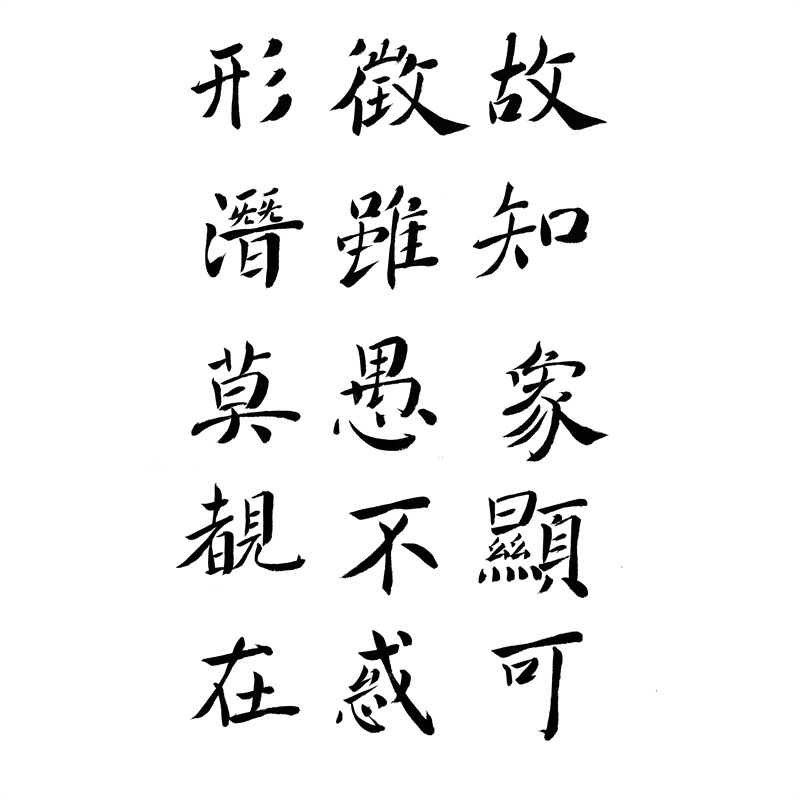 故知象顯可
徵雖愚不惑
形潛莫覩在